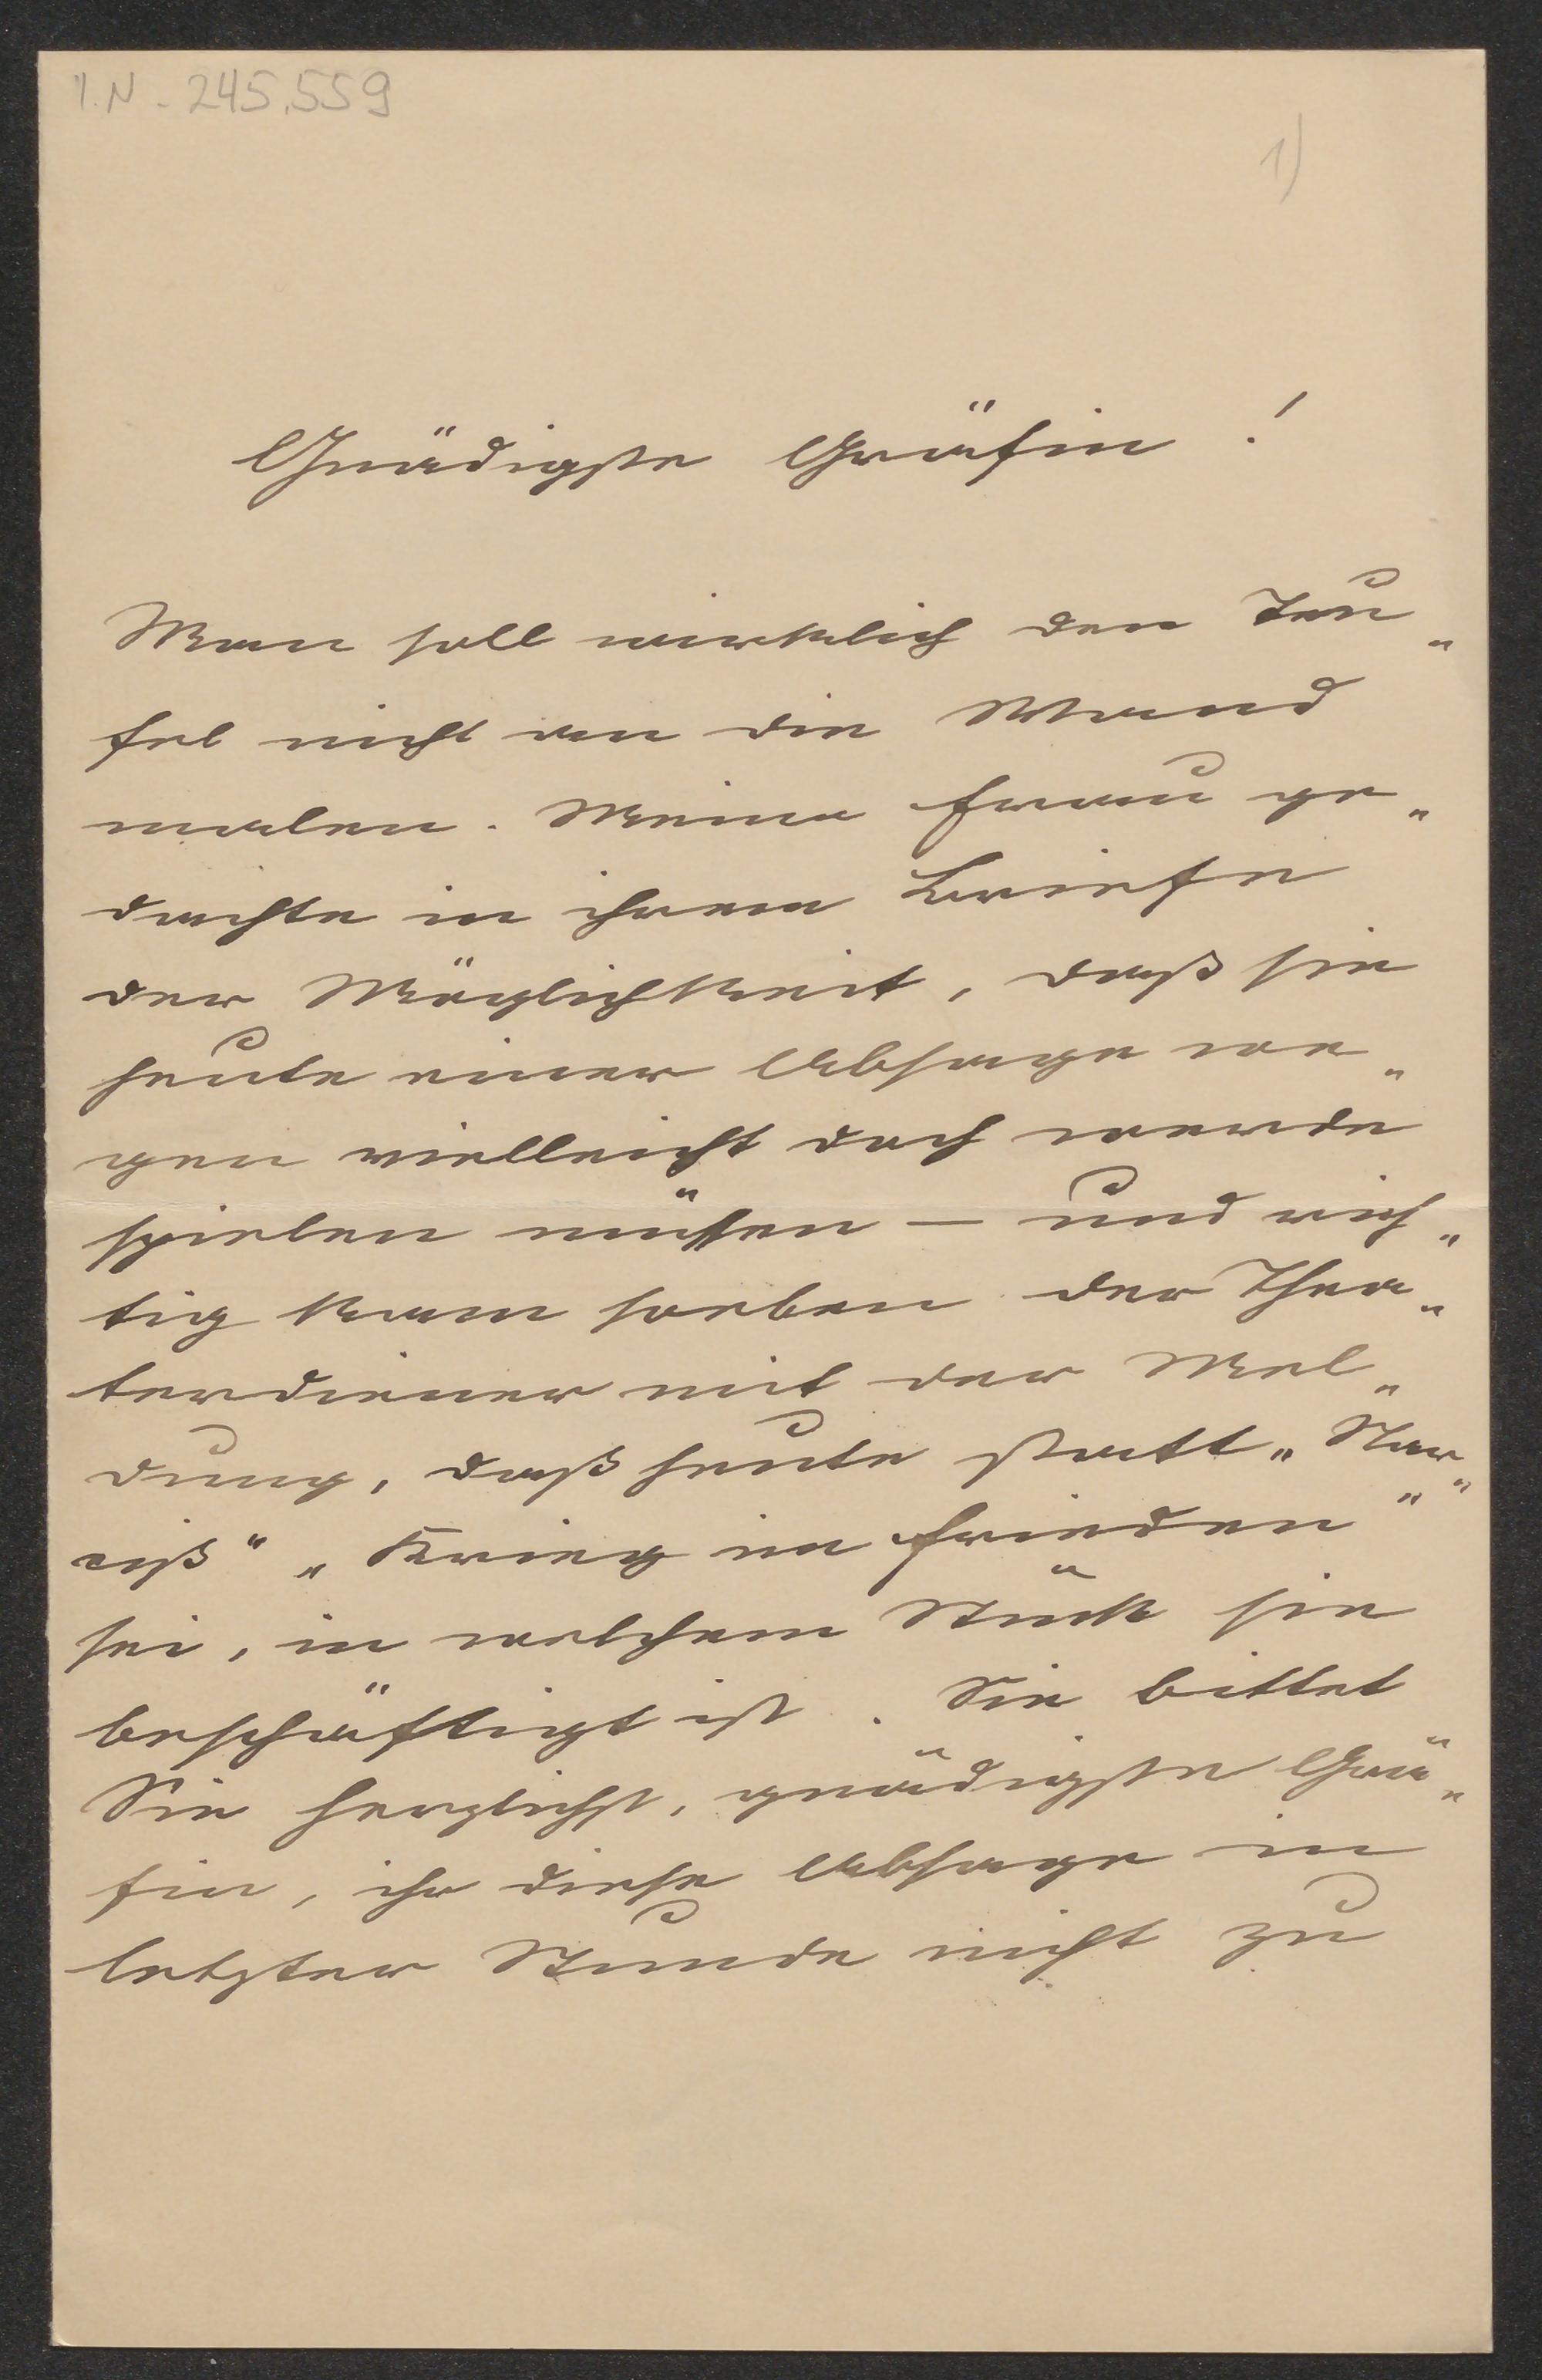 I.N. 245.559
1)
Gnädigste Gräfin!
Man soll wirklich den Teu„
fel nicht an die Wand
malen. Meine Frau ge„
dachte in ihrem Briefe
der Möglichkeit, daß sie
heute einer Absage we„
gen vielleicht doch werde
spielen müssen – und rich„
tig kam soeben der Thea„
terdiener mit der Mel„
dung, daß heute statt „Nar„
ciß“ „Krieg im Frieden“
sei, in welchem Stück sie
beschäftigt ist. Sie bittet
Sie herzlichst, gnädigste Grä„
fin, ihr diese Absage in
letzter Stunde nicht zu